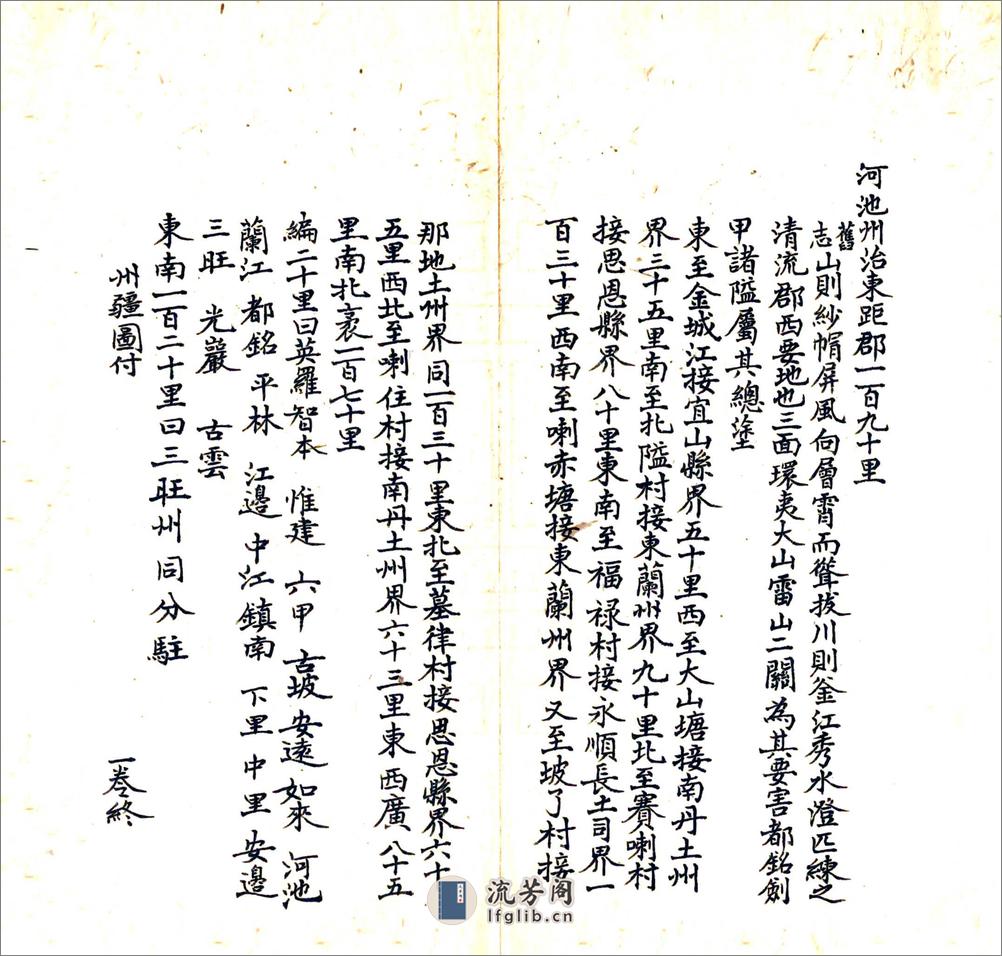 河池州治東距郡一百九十里
舊志山則紗帽屏風向層霄而聳拔川則釜江秀水澄匹練之
清流郡西要地也三面環夷大山雷山二關為其要害都銘剑
甲諸隘屬其總塗
東至金城江接宜山縣界五十里西至大山塘接南丹土州
界三十五里南至北隘村接東蘭州界九十里北至賽喇村
接思恩縣界八十里東南至福禄村接永順長土司界一
百三十里西南至喇赤塘接東蘭州界又至坡了村接
那地土州界同一百三十里東北至墓律村接思恩縣界六十
五里西北至喇住村接南丹土州界六十三里東西廣八十五
里南北袤一百七十里
編二十里曰英羅智本 惟建 六甲 古坡安遠如來 河池
蘭江 都銘 平林 江邊 中江鎮南 下里 中里 安邊
三旺 光巖 古雲
東南一百二十里曰三旺州同分駐
州疆圖付
一卷終
流芳阁
lfglib.cn